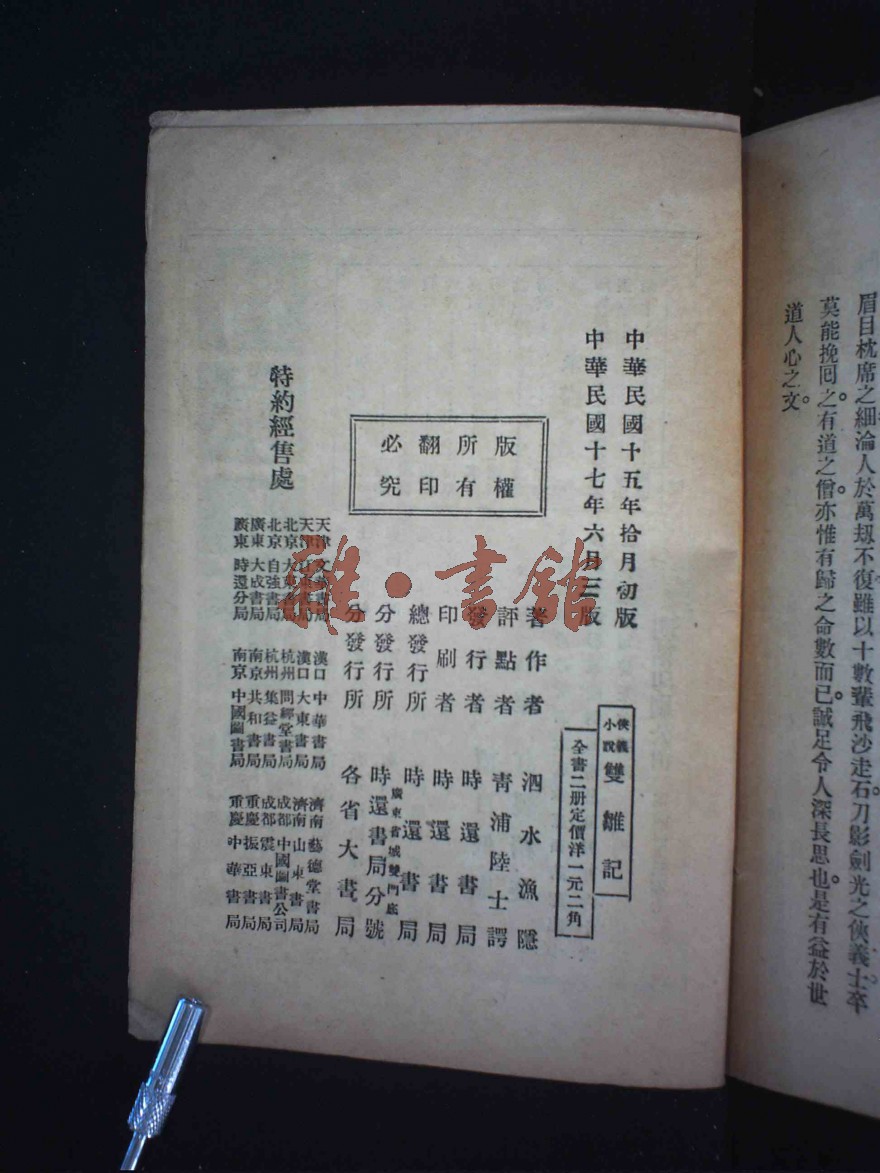 眉目枕席之細淪人於萬刼不復雖以十數輩飛沙走石刀影劍光之俠義士卒
莫能挽囘之有道之僧亦惟有歸之命數而已誠足令人深長思也是有益於世
道人心之文
中華民國十五年拾月初版
中華民國十七年六月三版
俠義小說 雙雛記
全書二册定價洋一元二角
版權所有翻印必究
著作者 泗水漁隱
評點者 青浦陸士諤
發行者 時還書局
印刷者 時還書局
總發行所 時還書局
分發行所 廣東省城雙門底 時還書局分號
分發行所 各省大書局
特約經售處
天津 文華書局
天津 書局
北京 大東書局
北京 自強書局
廣東 大成書局
廣東 時還分局
漢口 中華書局
漢口 大東書局
杭州 問經堂書局
杭州 集益書局
南京 共和書局
南京 中國圖書局
濟南 藝德堂書局
濟南 山東書局
成都 中國圖書公司
成都 震東書局
重慶 振亞書局
重慶 中華書局
雅·書館